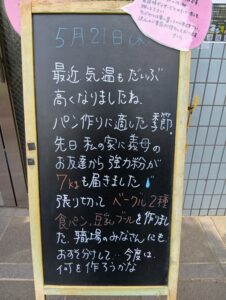 5月21日(水)
最近 気温もだいぶ
高くなりましたね
パン作りに適した季節。
先日 私の家に義母の
お友達から 強力粉が
7kgも届きました
張り切って ベーグル2種
食パン、豆乳ブールを作りまし
た。職場のみなさんにも
おすそ分けして… 今度は
何を作ろうかな